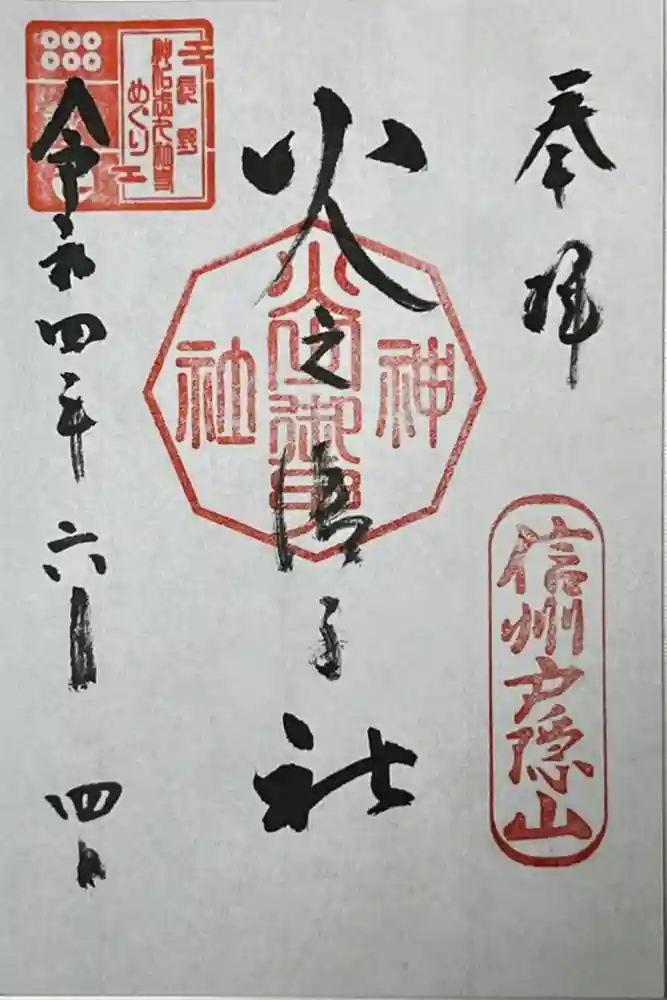 奉拝
信州戸隠山
火之御子社
神
社
令和四年六月四日
めぐり